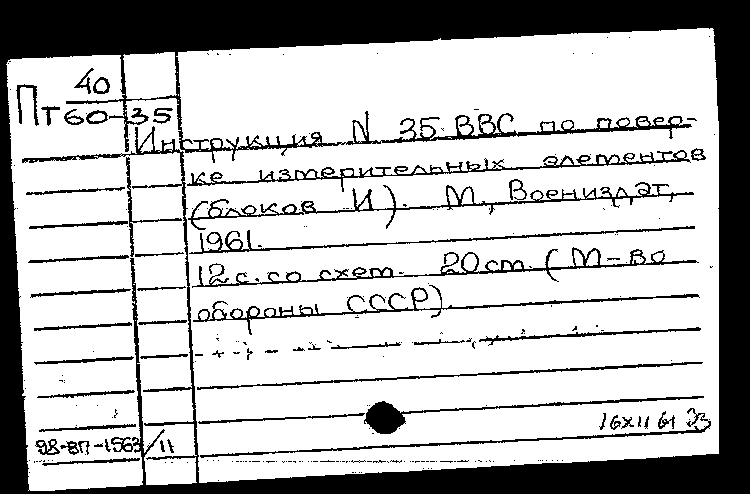 40
Пт 60-35
Инструкция N 35 ВВС по повер-
ке измерительных элементов
(блоков И). М., Воениздат,
1961.
12 с. со схем. 20 см. (М-во
обороны СССР).
98-ВП-1563/11
16 XII 61